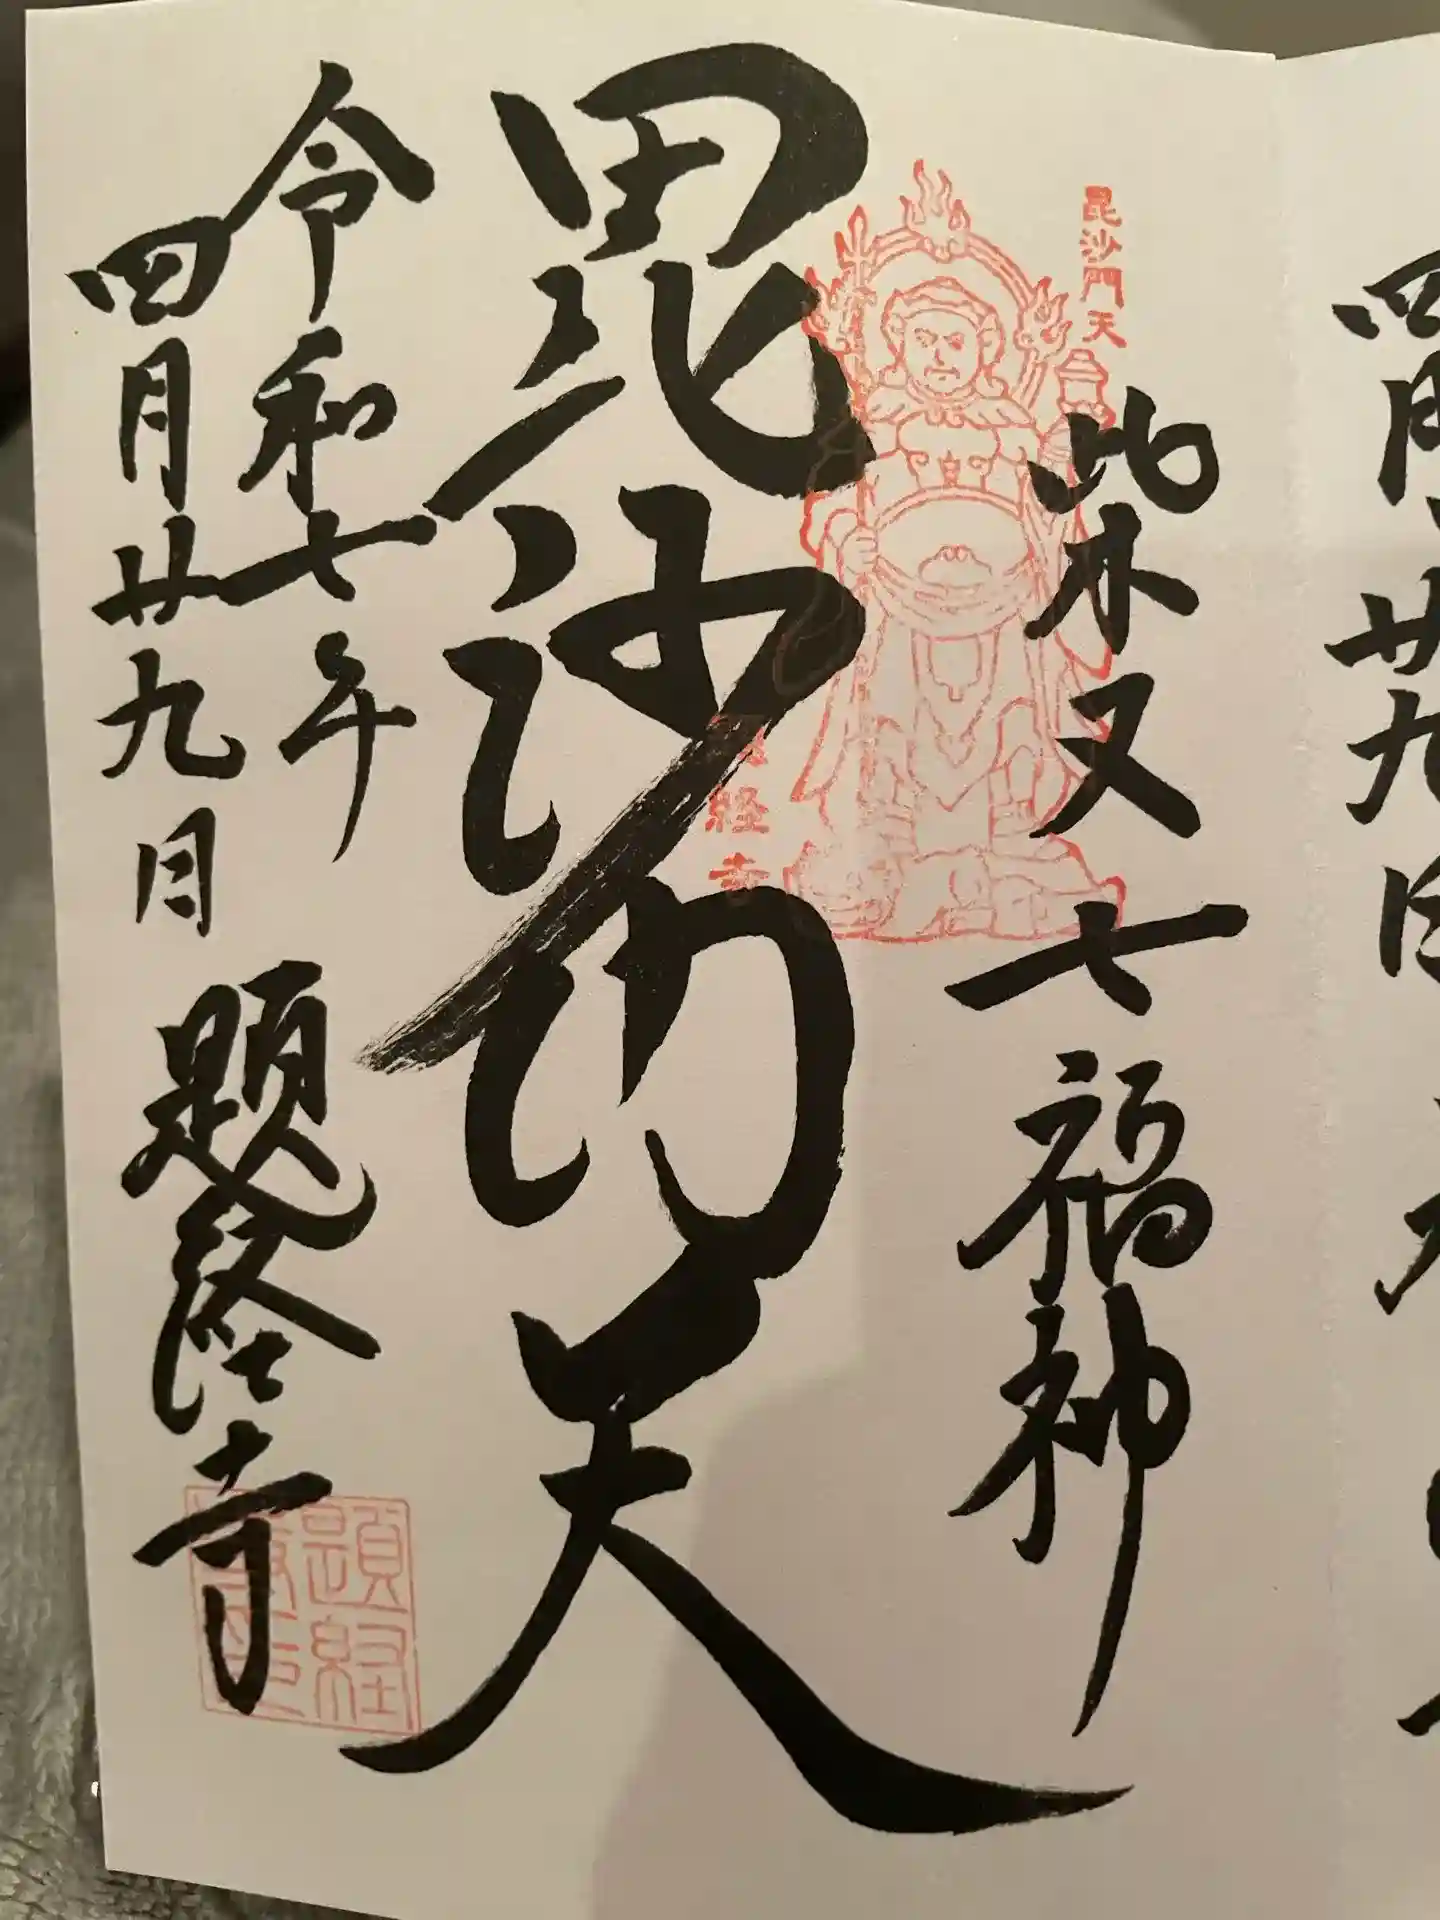 四月廿九日
毘沙門天
柴又七福神
毘沙門天
経寺
令和七年
四月廿九日
題経寺
題経